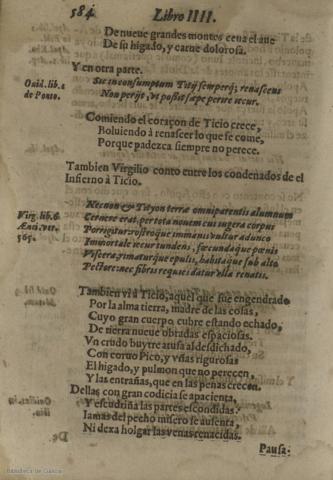 584 Libro IIII.
De nueue grandes montes ceua el aue
De su higado, y carne dolorosa.
Y en otra parte.
Ouid. lib. 1 de Ponto.
Sic inconsumptum Titij semperq; renascens
Non perijt, vt possit sæpe perire iecur.
Comiendo el coraçon de Ticio crece,
Boluiendo à renascer lo que se come,
Porque padezca siempre no perece.
Tambien Virgilio conto entre los condenados de el
Infierno à Ticio.
Virg. lib. 6 Aenei. ver. 595.
Necnon & Tityon terræ omniparentis alumnum
Cernere erat, per tota nouem cui iugera corpus
Porrigitur, rostroque immanis vultur adunco
Immortale iecur tundens, fœcundaque pœnis
Viscera, rimaturque epulis, habitatque sub alto
Pectore: nec fibris requies datur vlla renatis.
Tambien vi à Ticio, aquel que fue engendrado
Por la alma tierra, madre de las cosas,
Cuyo gran cuerpo, cubre estando echado,
De tierra nueue obradas espaciosas.
Vn crudo buytre atusa al desdichado,
Con coruo Pico, y vñas rigurosas
El higado, y pulmon que no perecen,
Y las entrañas, que en las penas crecen.
Dellas con gran codicia se apacienta,
Y escudriña las partes escondidas:
Iamas del pecho misero se ausenta,
Ni dexa holgar las venas renacidas.
Pausa-
Biblioteca de Galicia